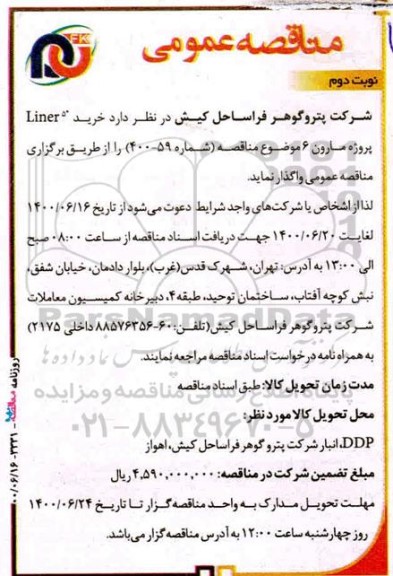 مناقصه عمومی
نوبت دوم
شرکت پتروگوهر فراساحل کیش در نظر دارد خرید Liner ۵"
پروژه مارون ۶ موضوع مناقصه (شماره ۵۹-۴۰۰) را از طریق برگزاری
مناقصه عمومی واگذار نماید.
لذا از اشخاص یا شرکت‌های واجد شرایط دعوت می‌شود از تاریخ ۱۴۰۰/۰۶/۱۶
لغایت ۱۴۰۰/۰۶/۲۰ جهت دریافت اسناد مناقصه از ساعت ۰۸:۰۰ صبح
الی ۱۳:۰۰ به آدرس: تهران، شهرک قدس(غرب)، بلوار دادمان، خیابان شفق،
نبش کوچه آفتاب، ساختمان توحید، طبقه ۴، دبیرخانه کمیسیون معاملات
شرکت پتروگوهر فراساحل کیش (تلفن: ۶۰-۸۸۵۷۶۳۵۶ داخلی ۲۱۷۵)
به همراه نامه درخواست اسناد مناقصه مراجعه نمایند.
مدت زمان تحویل کالا: طبق اسناد مناقصه
محل تحویل کالا مورد نظر:
DDP، انبار شرکت پتروگوهر فراساحل کیش، اهواز
مبلغ تضمین شرکت در مناقصه: ۴,۵۹۰,۰۰۰,۰۰۰ ریال
مهلت تحویل مدارک به واحد مناقصه‌گزار تا تاریخ ۱۴۰۰/۰۶/۲۴
روز چهارشنبه ساعت ۱۲:۰۰ به آدرس مناقصه‌گزار می‌باشد.
ParsNamadData
پایگاه اطلاع رسانی مناقصه و مزایده
۰۲۱-۸۸۳۴۹۶۷۰-۵